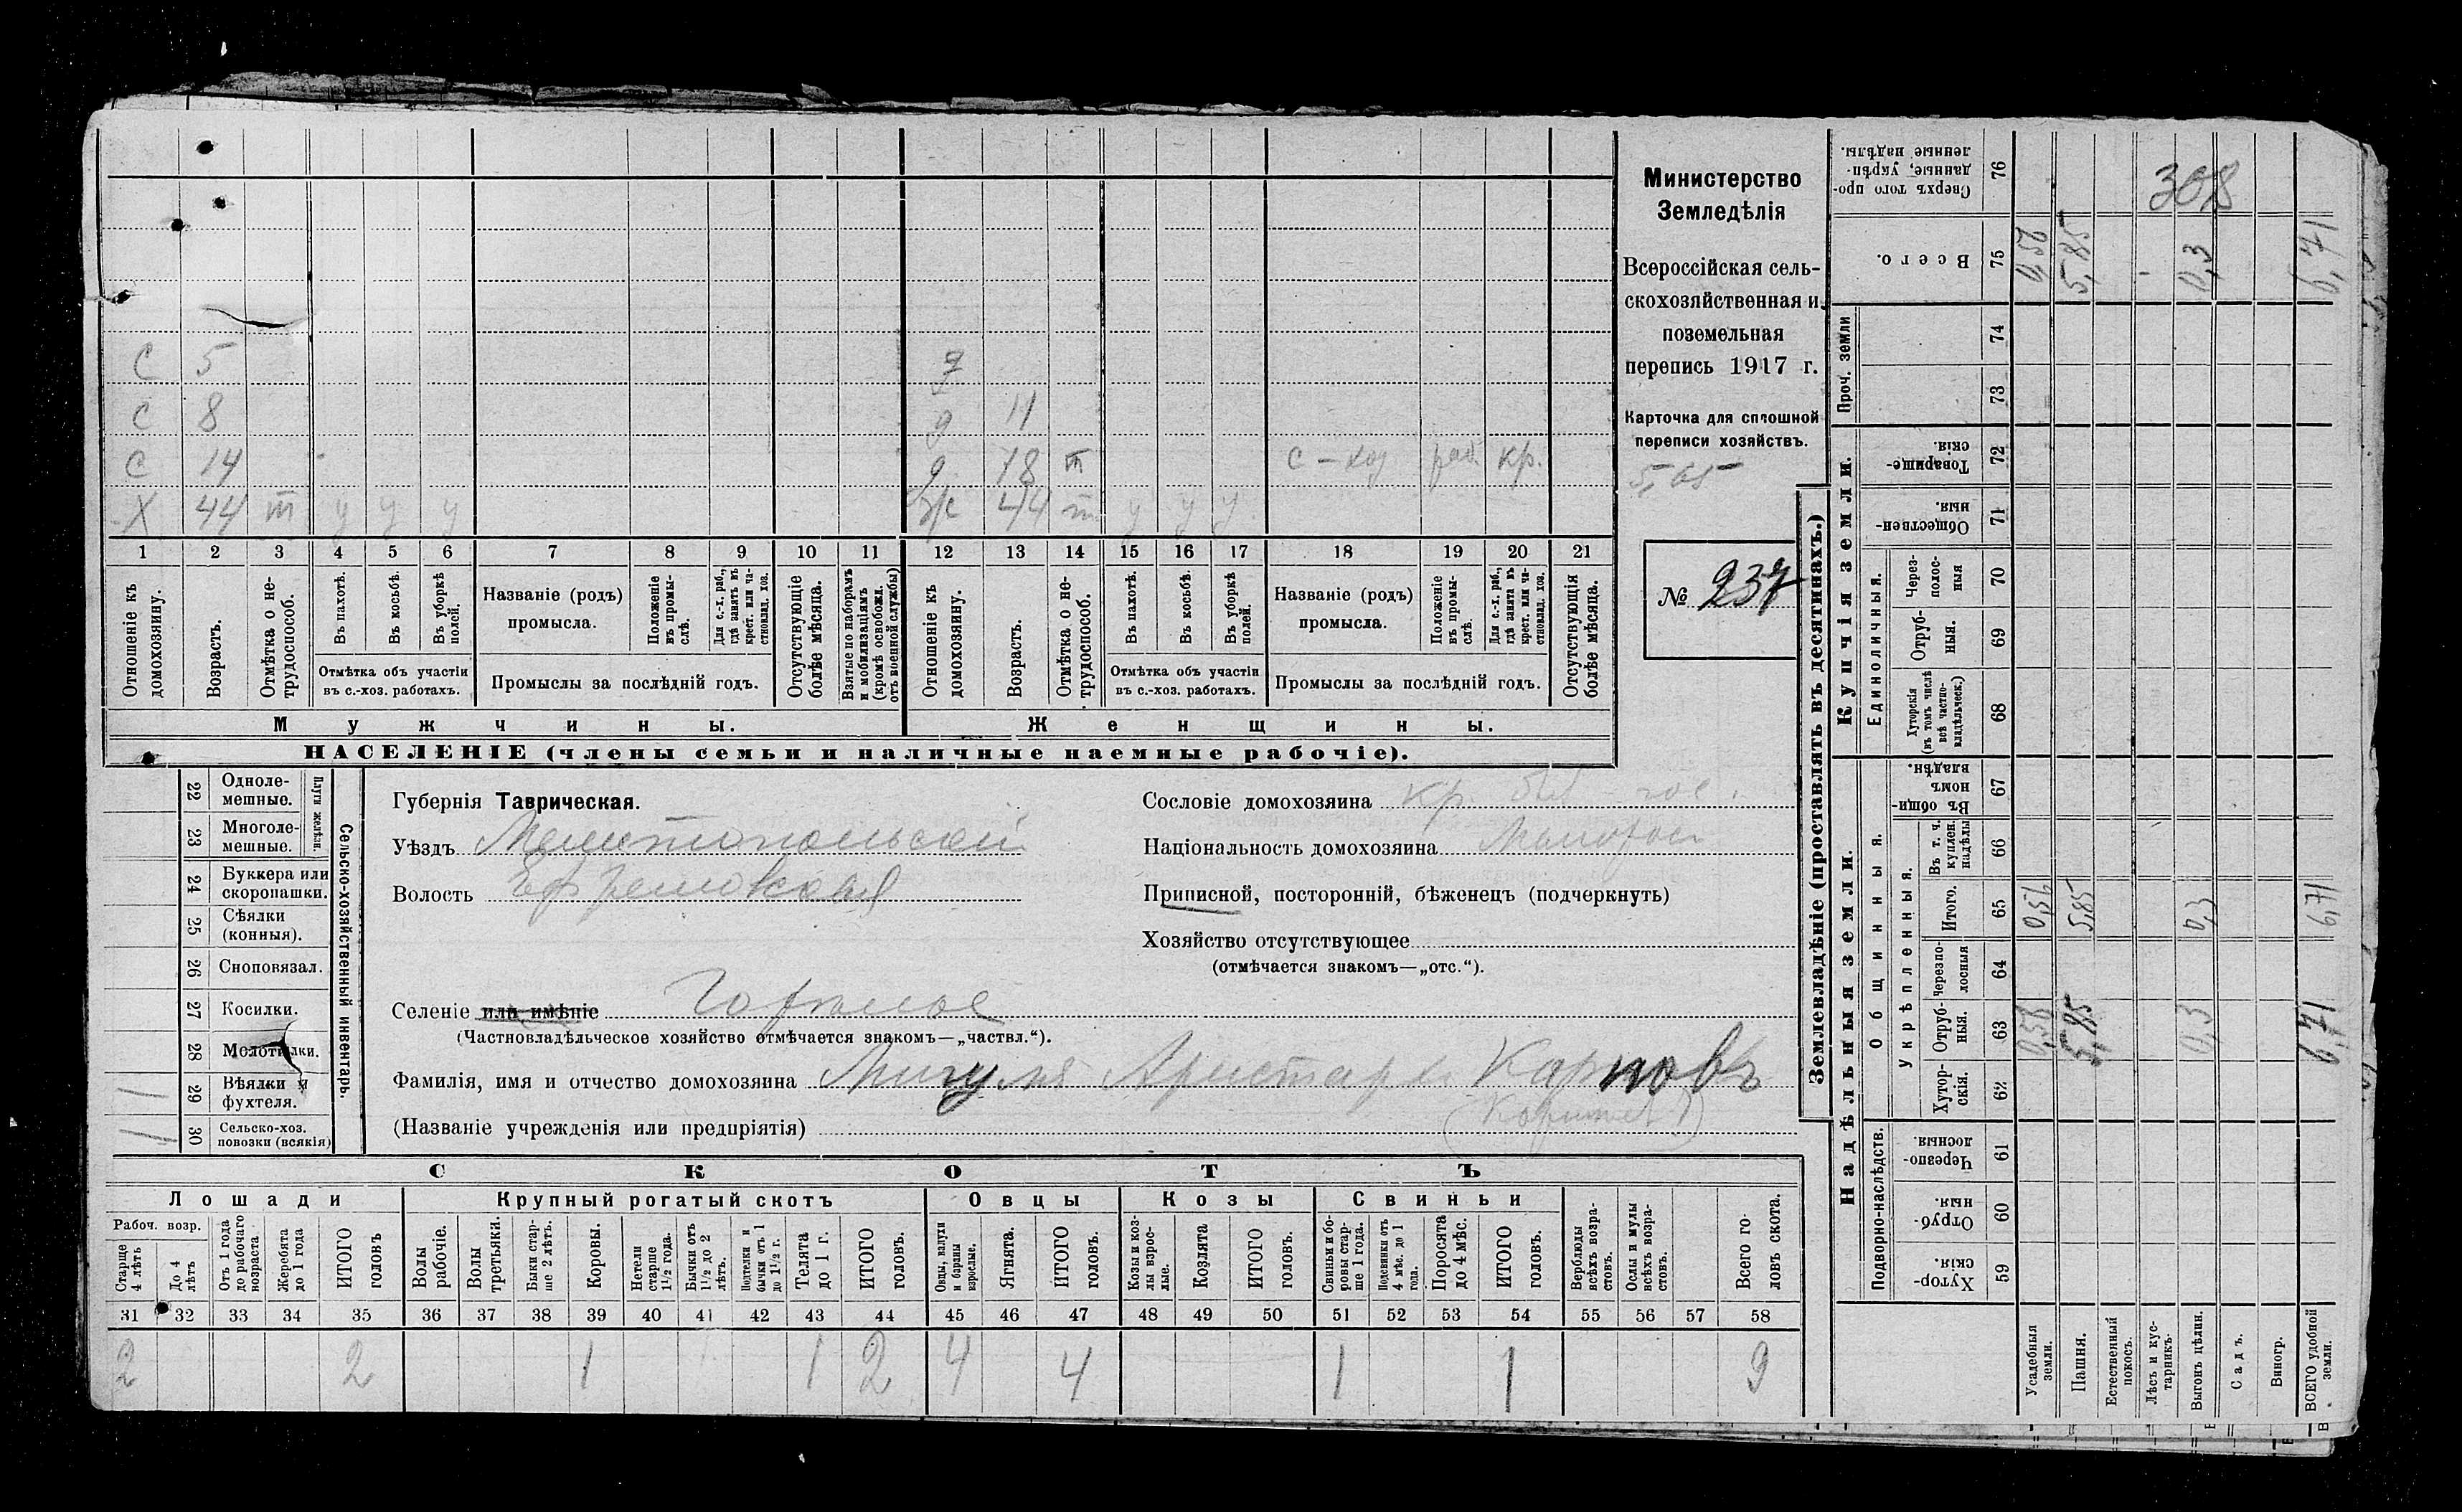 С 5 7
С 8 д 11
С 14 д 18 т с-хоз раб. кр.
Х 44 т у у у ж 44 т у у у
1 2 3 4 5 6 7 8 9 10 11 12 13 14 15 16 17 18 19 20 21
Отношеніе къ домохозяину.
Возрастъ.
Отмѣтка о не-трудоспособ.
Въ пахотѣ.
Въ косьбѣ.
Въ уборкѣ полей.
Отмѣтка объ участіи
въ с.-хоз. работахъ.
Названіе (родъ)
промысла.
Положеніе въ промы-слѣ.
Для с.-х. раб., гдѣ занятъ въ крест. или ча-стновлад. хоз.
Промыслы за послѣдній годъ.
Отсутствующіе болѣе мѣсяца.
Взятые по наборамъ и мобилизаціямъ (кромѣ освобожд. отъ военной службы)
Отношеніе къ домохозяину.
Возрастъ.
Отмѣтка о не-трудоспособ.
Въ пахотѣ.
Въ косьбѣ.
Въ уборкѣ полей.
Отмѣтка объ участіи
въ с.-хоз. работахъ.
Названіе (родъ)
промысла.
Положеніе въ промы-слѣ.
Для с.-х. раб., гдѣ занята въ крест. или ча-стновлад. хоз.
Промыслы за послѣдній годъ.
Отсутствующія болѣе мѣсяца.
Мужчины. Женщины.
НАСЕЛЕНІЕ (члены семьи и наличные наемные рабочіе).
Министерство
Земледѣлія
Всероссійская сель-
скохозяйственная и
поземельная
перепись 1917 г.
Карточка для сплошной
переписи хозяйствъ.
№ 237
Сельско-хозяйственный инвентарь.
Плуги желѣзн.
22 Одноле-мешные.
23 Многоле-мешные.
24 Буккера или скоропашки.
25 Сѣялки (конныя).
26 Сноповязал.
27 Косилки.
28 Молотилки.
29 Вѣялки и фухтеля. 1
30 Сельско-хоз. повозки (всякія) 1
Губернія Таврическая.
Уѣздъ Мелитопольскій
Волость Ефремовская
Селеніе или имѣніе Горѣлое
(Частновладѣльческое хозяйство отмѣчается знакомъ—„частвл.“).
Фамилія, имя и отчество домохозяина Мигуля Аристархъ Карповъ
(Названіе учрежденія или предпріятія)
Сословіе домохозяина кр. быв. гос.
Національность домохозяина Малорос
Приписной, посторонній, бѣженецъ (подчеркнуть)
Хозяйство отсутствующее
(отмѣчается знакомъ—„отс.“).
СКОТЪ
Лошади Крупный рогатый скотъ Овцы Козы Свиньи
Рабоч. возр.
Старше 4 лѣтъ
До 4 лѣтъ
Отъ 1 года до рабочаго возраста
Жеребята до 1 года
ИТОГО головъ
Волы рабочіе.
Волы третьяки.
Быки стар-ше 2 лѣтъ.
Коровы.
Нетели старше 1½ года.
Бычки отъ 1½ до 2 лѣтъ.
Подтелки и бычки отъ 1 до 1½ г.
Телята до 1 г.
ИТОГО головъ.
Овцы, валухи и бараны взрослые.
Ягнята.
ИТОГО головъ.
Козы и коз-лы взрос-лые.
Козлята
ИТОГО головъ.
Свиньи и бо-ровы стар-ше 1 года.
Подсвинки отъ 4 мѣс. до 1 года.
Поросята до 4 мѣс.
ИТОГО головъ.
Верблюды всѣхъ возра-стовъ.
Ослы и мулы всѣхъ возра-стовъ.
Всего го-ловъ скота.
31 32 33 34 35 36 37 38 39 40 41 42 43 44 45 46 47 48 49 50 51 52 53 54 55 56 57 58
2 2 1 1 2 4 4 1 1 9
Землевладѣніе (проставлять въ десятинахъ.)
Надѣльныя земли. Купчія земли. Проч. земли
Подворно-наслѣдств.
Общинныя.
Укрѣпленныя.
Единоличныя.
76 Сверхъ того про-данные, укрѣп-ленные надѣлы. 308
75 Всего. 0,56 5,85 0,3 6,71
74
73
72 Товарище-скія.
71 Обществен-ныя
70 Через-полос-ныя
69 Отруб-ныя.
68 Хуторскія (въ томъ числѣ всѣ частно-владѣльческ.)
67 Въ общин-номъ владѣн.
66 Въ т. ч. куплен. надѣлы
65 Итого. 0,56 5,85 0,3 6,71
64 Черезпо-лосныя
63 Отруб-ныя. 0,56 5,85 0,3 6,71
62 Хутор-скія.
61 Черезпо-лосныя
60 Отруб-ныя.
59 Хутор-скія
Усадебныя земли.
Пашня.
Естественный покосъ.
Лѣсъ и кус-тарникъ.
Выгонъ цѣлин.
Садъ.
Виногр.
ВСЕГО удобной земли.